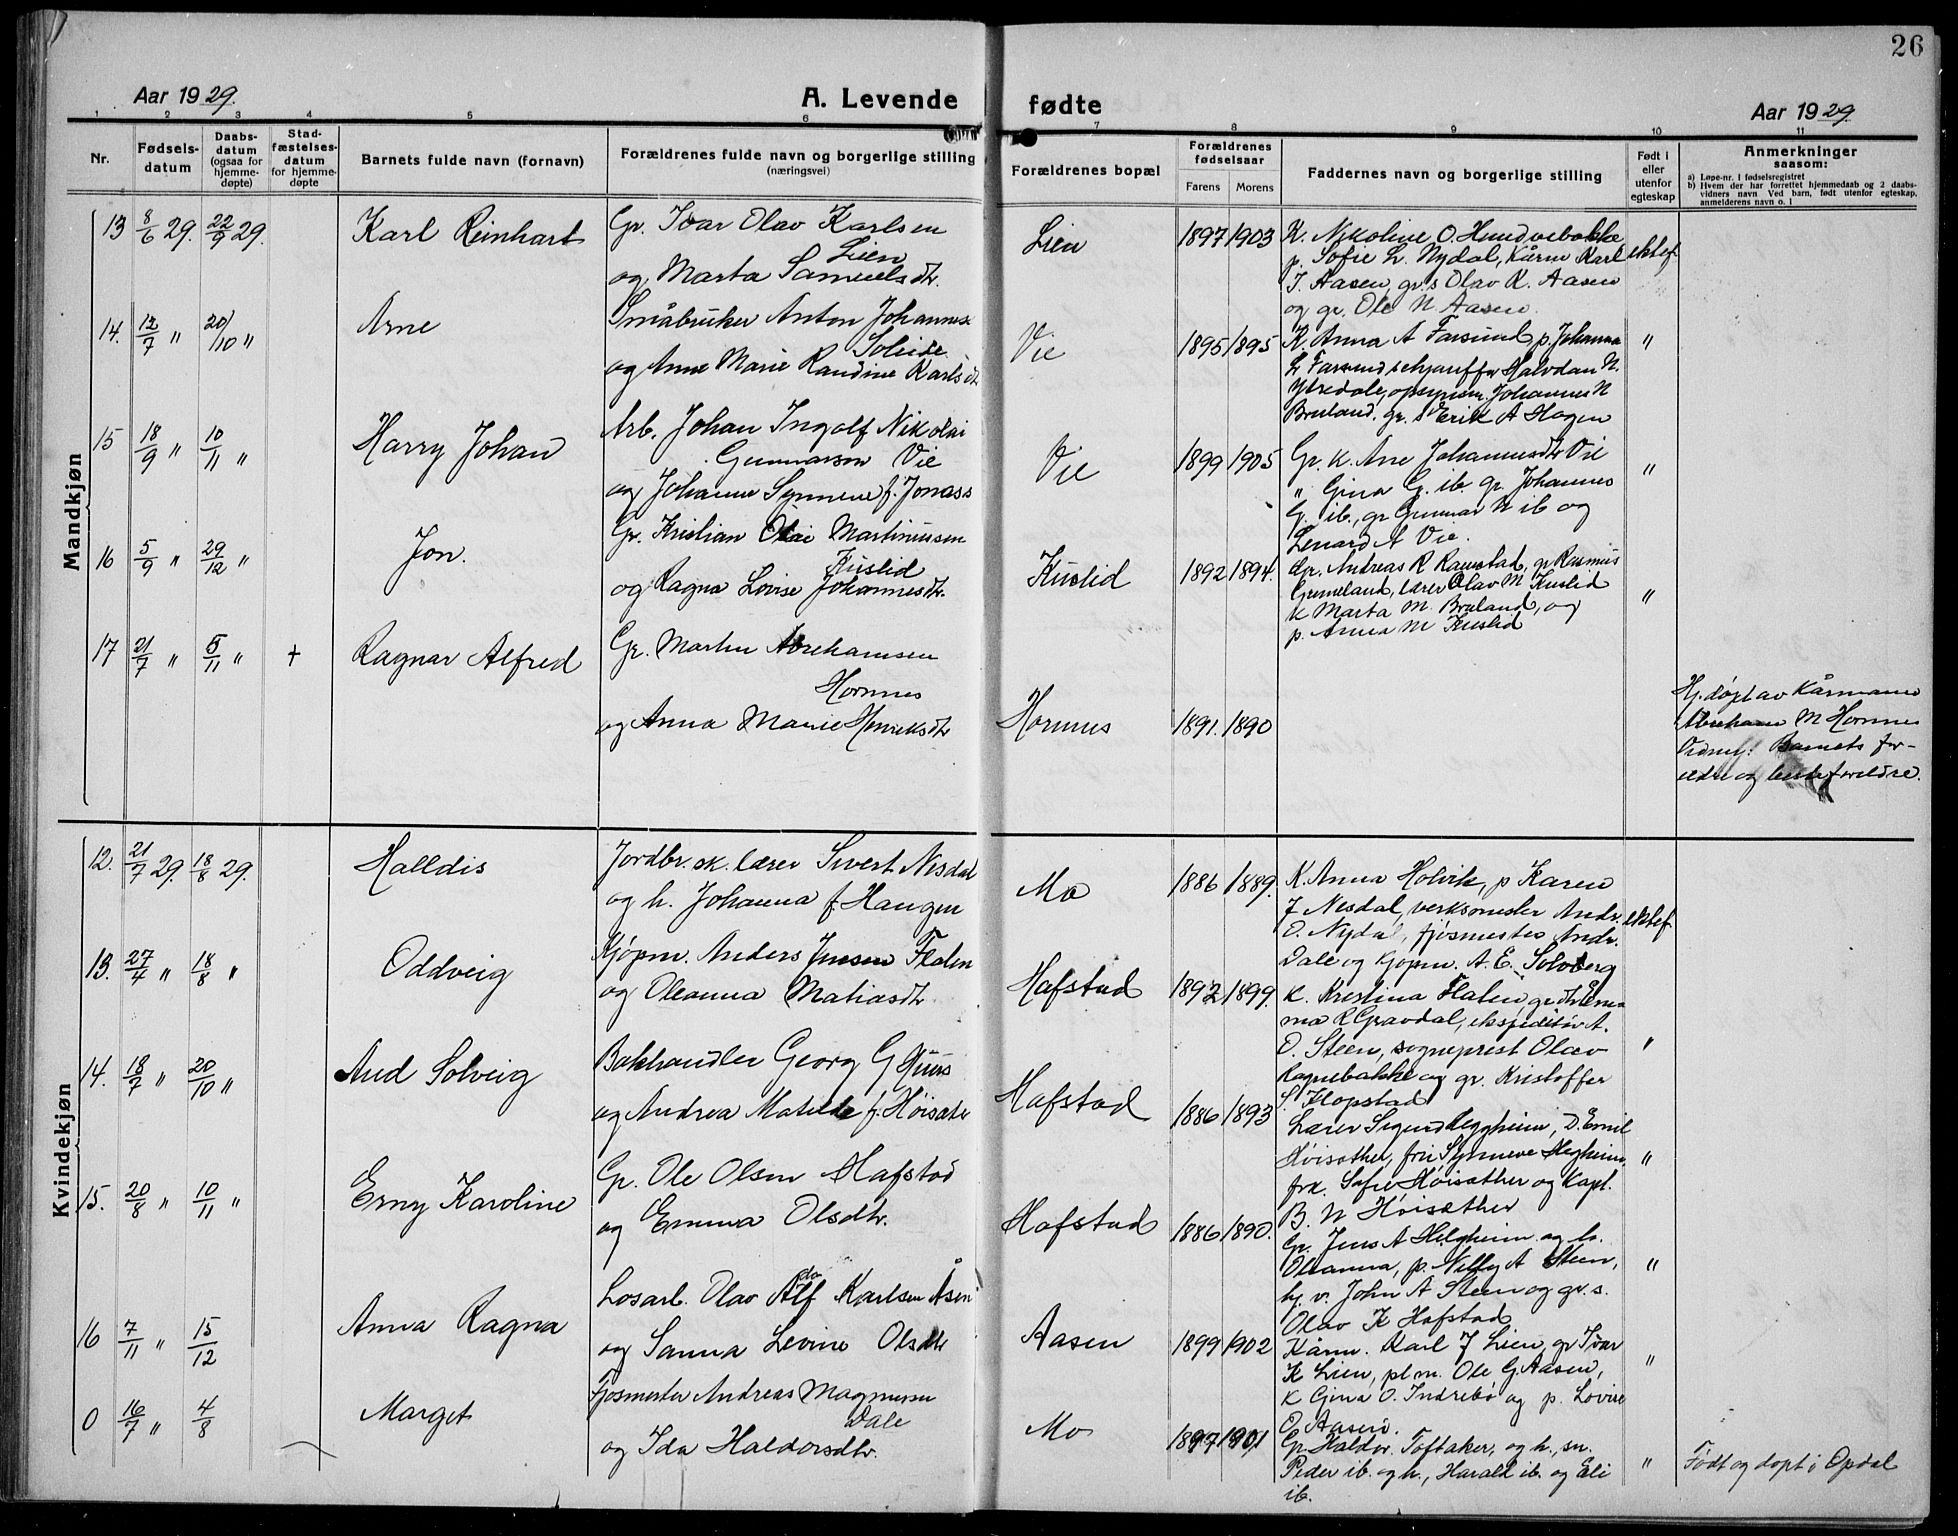 26
Aar 1929.
A. Levende fødte
Aar 1929.
1 2 3 4 5 6 7 8 9 10 11
Nr.
Fødsels-
datum
Daabs-
datum
(ogsaa for
hjemme-
døpte)
Stad-
fæstelses-
datum
for hjemme-
døpte
Barnets fulde navn (fornavn)
Forældrenes fulde navn og borgerlige stilling
(næringsvei)
Forældrenes bopæl
Forældrenes
fødselsaar
Farens Morens
Faddernes navn og borgerlige stilling
Født i
eller
utenfor
egteskap
Anmerkninger
saasom:
a) Løpe-nr. i fødselsregistret
b) Hvem der har forrettet hjemmedaab og 2 daabs-
vidners navn Ved barn, født utenfor egteskap,
anmelderens navn o. l
Mandkjøn
13 8/6 29. 22/9 29. Karl Reinhart
Gr. Ivar Olav Karlsen
Lien
og Marta Samuelsdtr.
Lien 1897 1903
K. Nikoline O. Hundvebakke
p. Sofie L. Nydal, Kårm Karl
J. Aasen, gr. s Olav K. Aasen
og gr. Ole N Aasen.
ektef
14. 12/7 " 20/10 " Arne
Småbruker Anton Johannes
Solheim
og Anne Marie Raudine Karlsdtr
Vie 1895 1895 "
K. Anna A Farsund p. Johanna
L Farsund Halvdan N.
Ytredale, opsynsm. Johannes N
Bruland. gr. s Erik A Hagen
15 18/9 " 10/11 " Harry Johan
Arb. Johan Ingolf Nikolai
Gunnarson Vie
og Johanne Synneve f. Jonass
Vie 1899 1905 "
Gr. K. Ane Johannesdtr Vie
" Gina G. ib. gr. Johannes
G. ib., gr Gunnar N ib og
Lenard A Vie.
16 5/9 " 29/12 " Jon.
Gr. Kristian Olai Martinussen
Kuslid
og Ragna Lovise Johannesdtr.
Kuslid 1892 1894. "
Gr. Andreas R Ramstad, gr Rasmus
Grimeland, lærer Olav M Kuslid
K Marta M. Bruland, og
p. Anna M Kuslid
17 21/7 " 5/11 " + Ragnar Alfred
Gr. Martin Abrehamsen
Hornnes
og Anna Marie Henriksdtr
Hornnes 1891. 1890
Hj. døpt av Kårmann
Abreham M Hornnes
Vidny: Barnets for-
eldre og besteforeldre.
Kvindekjøn
12. 21/7 29. 18/8 29. Halldis
Jordbr. sk. lærer Sivert Nesdal
og h. Johanna f. Haugen
Mo 1886 1889.
K. Anna Holvik, p Karen
J Nesdal, verksmester Andr.
O. Nydal, fjøsmester Andr.
Dale og Kjøpm. A. E. Solberg
ektef
13. 27/4 " 18/8 " Oddveig
Kjøpm. Anders Jensen Flaten
og Oleanna Matiasdtr
Hafstad 1892 1899. "
K. Kristina Flaten, gr dtr Em-
ma R Gravdal, ekspeditør A.
O. Steen, sogneprest Olav
Ragnebakke og gr. Kristoffer
S. Klopstad
14. 18/7 " 20/10 " Aud Solveig
Bokhandler Georg G
og Andrea Matilde f. Høisæter
Hafstad 1886 1893 "
Lærer Sigurd Heggheim, D. Emil
Høisæther, fru Synneve Hegheim,
frk. Sofie Høisæther og Kapt.
B. N Høisæther
15. 20/8 " 10/11 " Erny Karoline
Gr. Ole Olsen Hafstad
og Emma Olsdtr.
Hafstad 1886 1890. "
Gr. Jens A Helgheim og h.
Oleanna, p. Nelly A Steen,
hj. v. John A Steen og gr. s.
Olav K Hafstad
16 7/11 " 15/12 Anna Ragna
Losarb. Olav Alf Karlsen Åsen
og Sanna Levine Olsdtr
Aasen 1899 1902 "
Kårm. Karl J Lien, gr Ivar
K Lien, pl m. Ole G. Aasen,
K Gina O. Indrebø og p. Lovise
O. Aasen.
0 16/7 " 4/8 Marget
Fjøsmester Andreas Magnussen
Dale
og Ida Haldorsdtr.
Mo 1897 1901 "
Gr. Haldor. Toftaker, og h., sn.
Peder ib. og h., Harald ib. og Eli
ib.
Født og døpt i Opdal